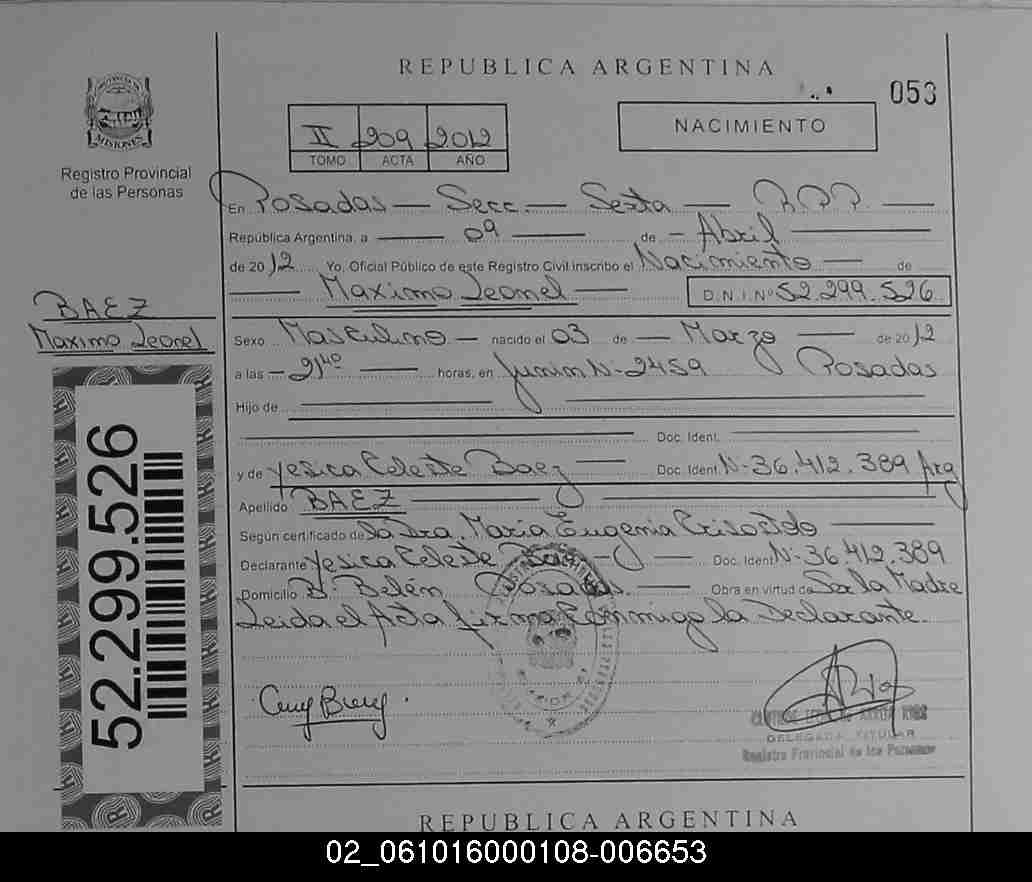 REPUBLICA ARGENTINA
053
PROVINCIA DE
MISIONES
Registro Provincial
de las Personas
II 209 2012
TOMO ACTA AÑO
NACIMIENTO
En Posadas — Secc. — Sexta — R.P.P. —
República Argentina, a — 09 — de — Abril —
de 2012 Yo, Oficial Público de este Registro Civil inscribo el Nacimiento — de
— Maximo Leonel — D.N.I. Nº 52.299.526
BAEZ
Maximo Leonel
Sexo Masculino — nacido el 03 de — Marzo — de 2012
a las — 21⁴⁰ — horas, en Junin Nº 2459 Posadas
Hijo de —
— Doc. Ident. —
y de Yesica Celeste Baez — Doc. Ident. Nº 36.412.389 Arg
Apellido BAEZ —
Según certificado de la Dra. María Eugenia —
Declarante Yesica Celeste Baez — Doc. Ident. Nº 36.412.389
Domicilio Bº Belén Posadas — Obra en virtud de Ser la Madre
Leida el Acta firma Conmigo la Declarante.
52.299.526
DELEGADA TITULAR
Registro Provincial de las Personas
REPUBLICA ARGENTINA
02_061016000108-006653